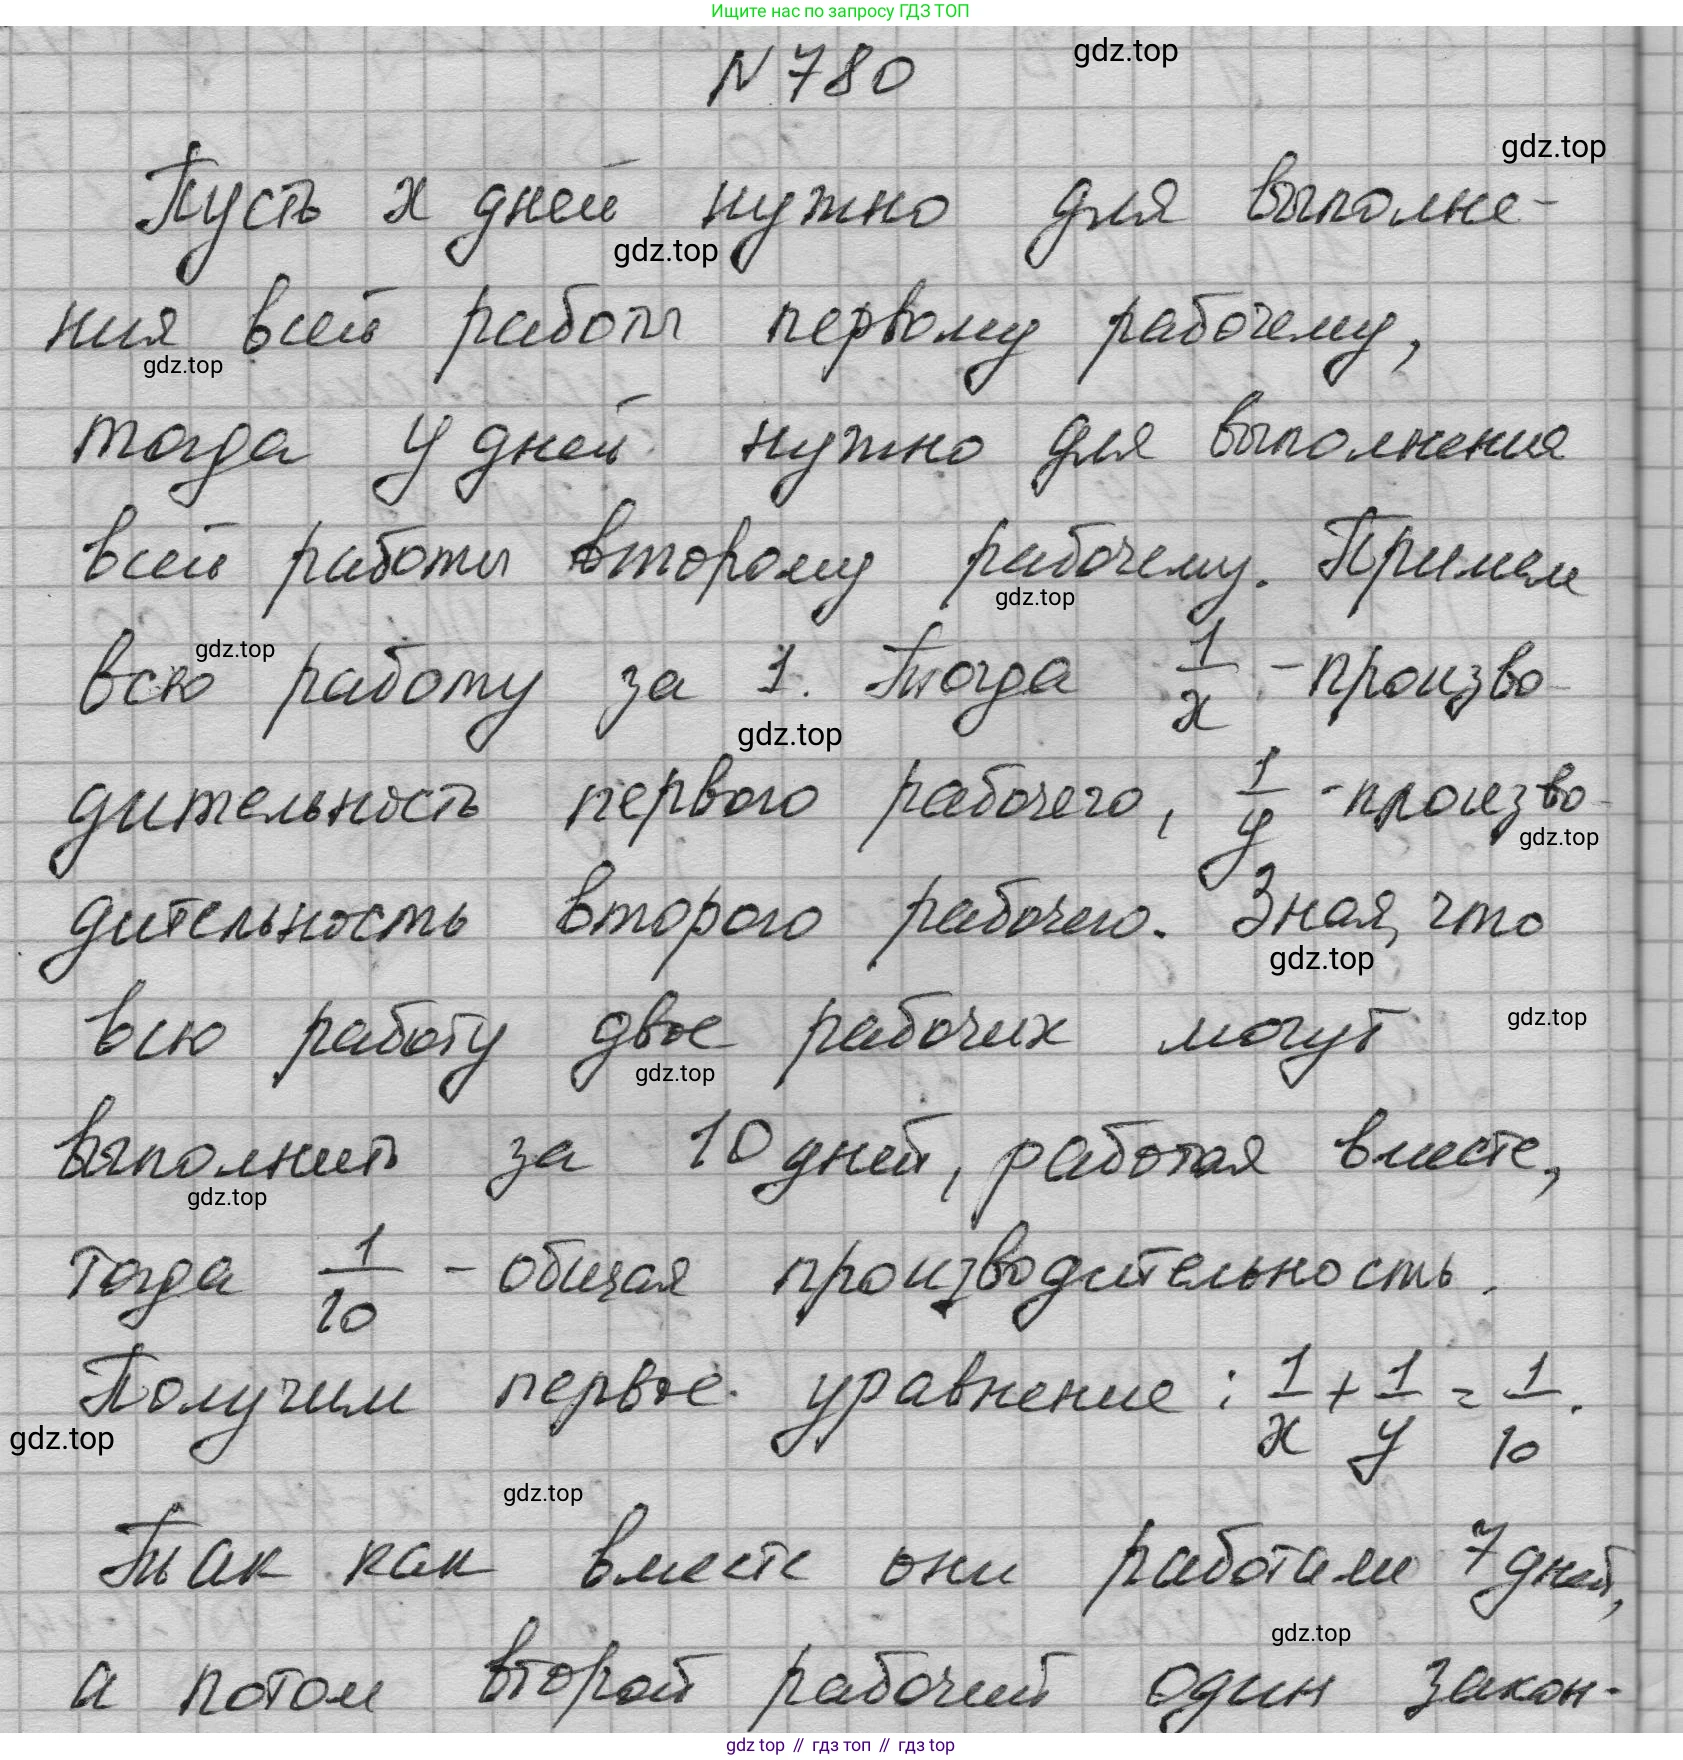 Ищите нас по запросу ГДЗ ТОП
N 780
gdz.top
gdz.top
Пусть x дней нужно для выполне-
gdz.top
ния всей работы первому рабочему,
gdz.top
тогда y дней нужно для выполнения
всей работы второму рабочему. Примем
gdz.top
gdz.top
всю работу за 1. Тогда 1/x - произво-
gdz.top
дительность первого рабочего, 1/y - произво-
gdz.top
дительность второго рабочего. Зная, что
gdz.top
всю работу двое рабочих могут
gdz.top
gdz.top
выполнить за 10 дней, работая вместе,
gdz.top
тогда 1/10 - общая производительность.
Получим первое уравнение: 1/x + 1/y = 1/10.
gdz.top
gdz.top
Так как вместе они работали 7 дней,
gdz.top
а потом второй рабочий один закон-
gdz top // гдз топ // гдз top